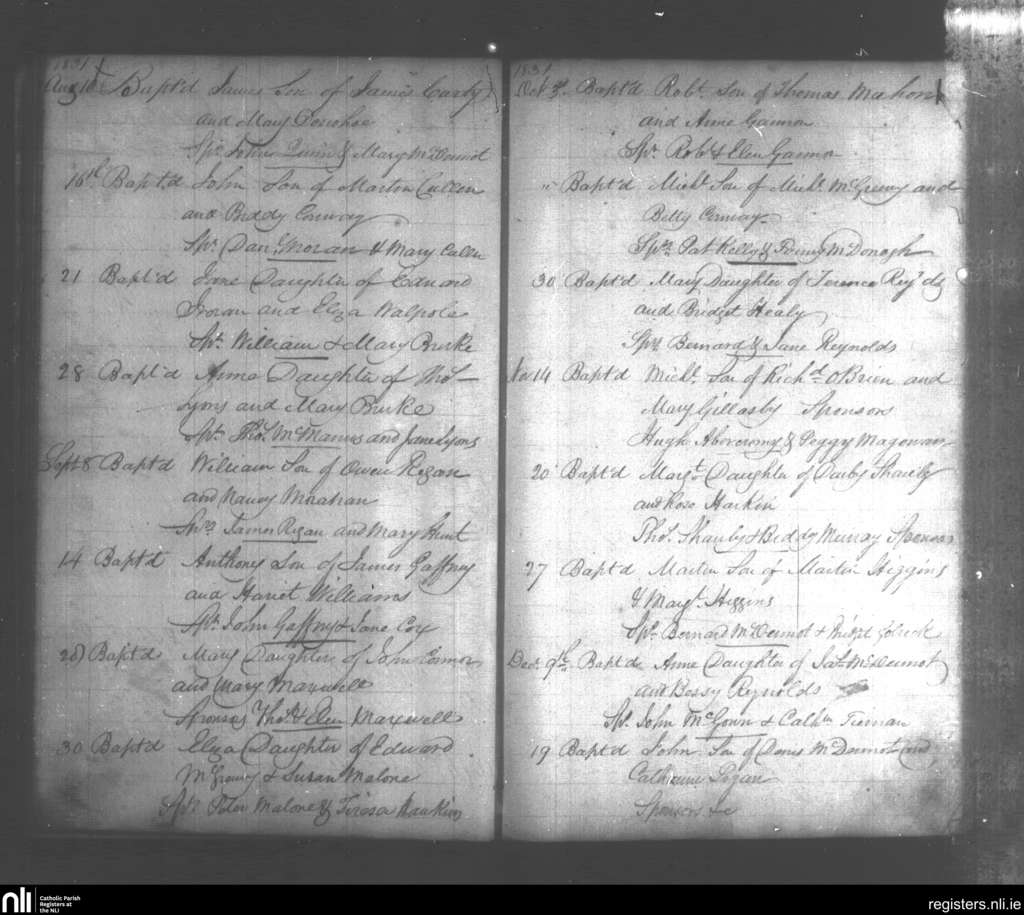 1831
Aug 10 Bapt'd James Son of James Carty
and Mary Donohoe
Sprs John Quinn & Mary McDermot
16th Bapt'd John Son of Martin Cullen
and Biddy Conway
Sprs Danl Moran & Mary Cullen
21 Bapt'd Jane Daughter of Edward
and Eliza Walpole
Sprs William & Mary Burke
28 Bapt'd Anne Daughter of Thos
Lyons and Mary Burke
Sprs Thos McManus and Jane Lyons
Sept 8 Bapt'd William Son of Owen Regan
and Nancy Monahan
Sprs James Regan and Mary Hunt
14 Bapt'd Anthony Son of James Gaffney
and Hariet Williams
Sprs John Gaffny & Jane Cox
Bapt'd Mary Daughter of John Connor
and Mary Maxwell
Sponsors Thos & Elen Maxwell
30 Bapt'd Eliza Daughter of Edward
McGreevy & Susan Malone
Sprs Peter Malone & Teresa Hawkins
1831
Oct Bapt'd Robt Son of Thomas Mahon
and Anne Gannon
Sprs Robt & Elen Gannon
" Bapt'd Michl Son of Michl McGreevy and
Betty Conway
Sprs Pat Kelly & McDonagh
30 Bapt'd Mary Daughter of Terence Rey'ds
and Bridget Healy
Sprs Bernard & Jane Reynolds
Nov 14 Bapt'd Michl Son of Richd O'Brien and
Mary Gillasby Sponsors
Hugh Abercromy & Peggy Magowan
20 Bapt'd Margt Daughter of Darby Shanly
and Rose Harkin
Thos Shanly & Biddy Murray Sponsors
27 Bapt'd Martin Son of Martin Higgins
& Margt Higgins
Sprs Bernard McDermot & Bridget
Decr 9th Bapt'd Anne Daughter of Jas McDermot
and Bessy Reynolds
Sprs John McGown & Cathn Tiernan
19 Bapt'd John Son of Denis McDermot and
Catherine Regan
Sponsors &c
nli
Catholic Parish
Registers at
the NLI
registers.nli.ie